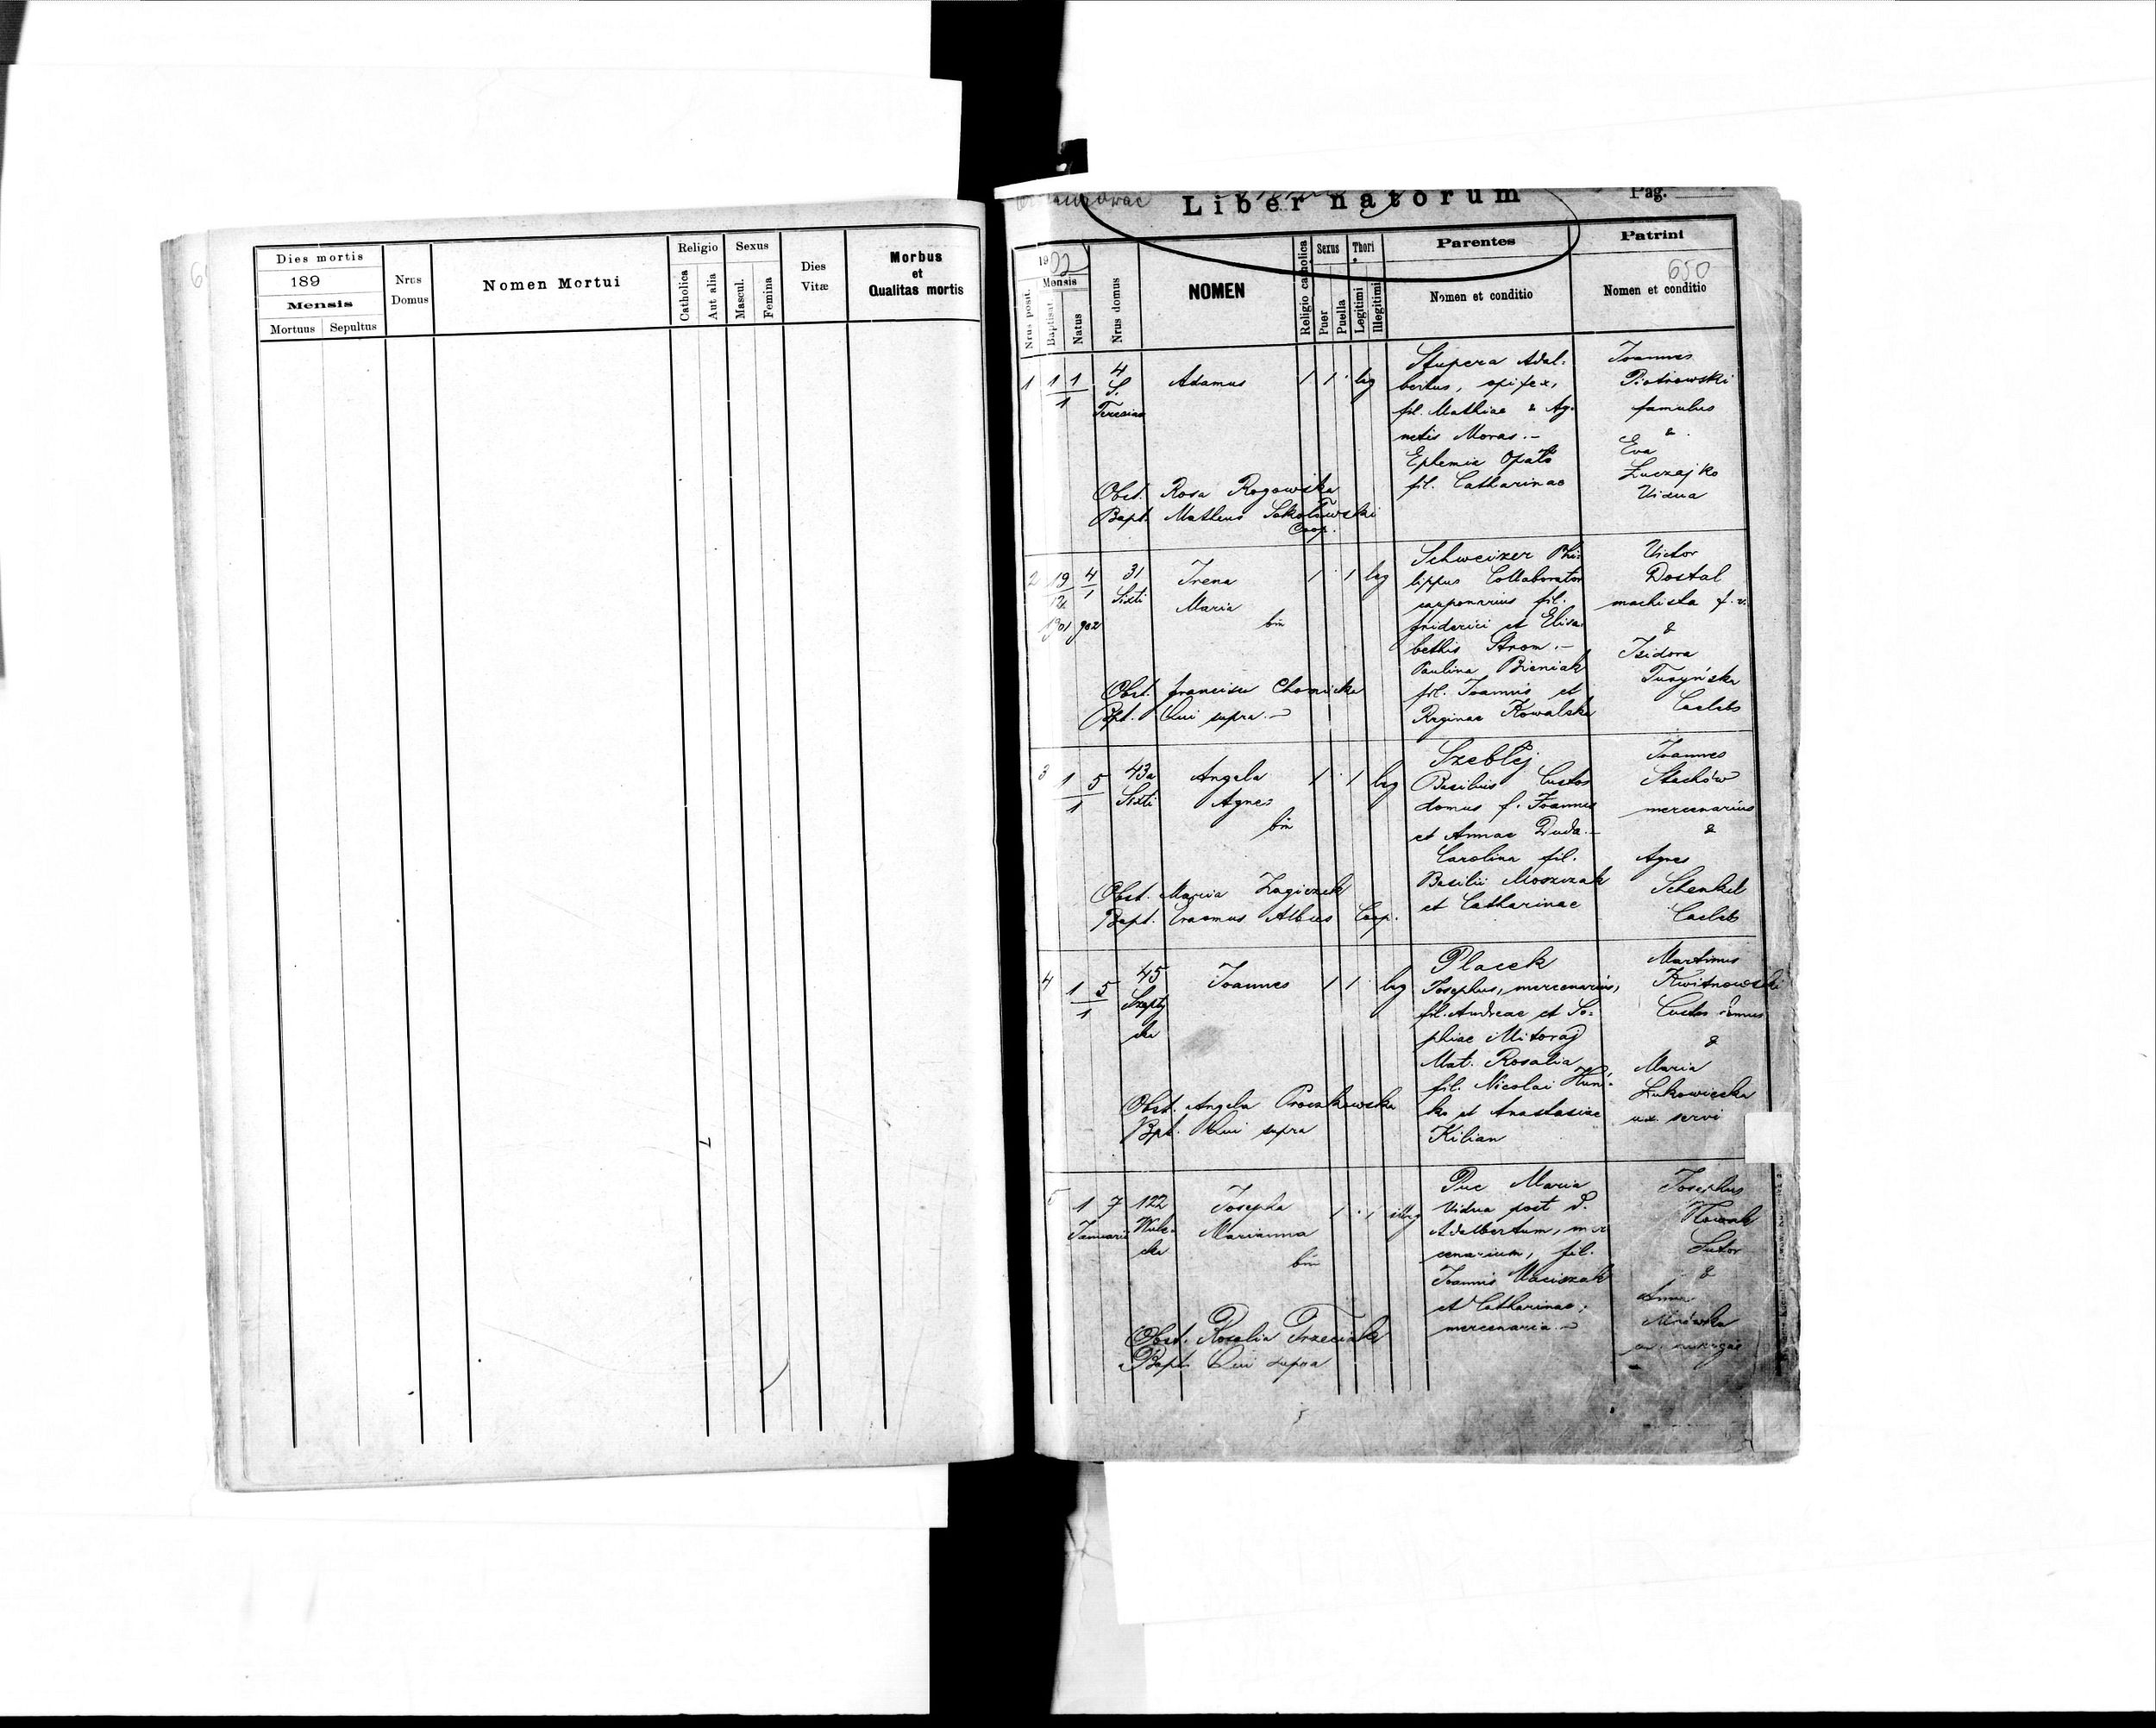 Dies mortis
189
Mensis
Mortuus Sepultus
Nrus
Domus
Nomen Mortui
Religio
Catholica
Aut alia
Sexus
Mascul.
Femina
Dies
Vitæ
Morbus
et
Qualitas mortis
Liber natorum
Pag.
650
1902
Mensis
Nrus posit.
Baptisat.
Natus
Nrus domus
NOMEN
Religio catholica
Sexus
Puer
Puella
Thori
Legitimi
Illegitimi
Parentes
Nomen et conditio
Patrini
Nomen et conditio
1 1 1
1
4
S.
Teresiae
Adamus
1 1 · leg
Stupera Adal-
bertus, opifex,
fil. Mathiae & Ag-
netis Moras.-
Ephemia Opała
fil. Catharinae
Joannes
Piotrowski
famulus
&
Eva
Łuczajko
Vidua
Obst. Rosa Rogowska
Bapt. Matheus Sokołowski
Coop.
2 19 4
12 1
1901 902
31
Sixti
Irena
Maria
bin
1 · 1 leg
Schweizer Phi-
lippus Collaborator
cauponarius fil.
Friderici et Elisa-
bethis Strom.-
Paulina Bieniak
fil. Joannis et
Reginae Kowalska
Victor
Dostal
machista f. v.
&
Isidora
Turyńska
Caelebs
Obst. Francisca Chomicka
Bpt. Qui supra.-
3 1 5
1
43a
Sixti
Angela
Agnes
bin
1 · 1 leg
Szebłej
Basilius Custos
domus f. Joannis
et Annae Duda.-
Carolina fil.
Basilii Moszczak
et Catharinae
Joannes
Stachów
mercenarius
&
Agnes
Schenkel
Caelebs
Obst. Maria Zagiczek
Bapt. Erasmus Albus Coop.
4 1 5
1
45
Szepty
cka
Joannes
1 1 · leg
Placek
Josephus, mercenarius,
fil. Andreae et So-
phiae Mitoraj
Mat. Rosalia
fil. Nicolai Huń-
ko et Anastasiae
Kilian
Martinus
Kwitnowski
Custos domus
&
Maria
Łukowiecka
ux. servi
Obst. Angela Proczkowska
Bpt. Qui supra
5 1 7
Januarii
122
Wule-
cka
Josepha
Marianna
bin
1 · 1 illeg
Puc Maria
Vidua post d.
Adalbertum, mer
cenarium, fil.
Joannis Maciszak
et Catharinae,
mercenaria.-
Josephus
Nowak
Sutor
&
Anna
Mrówka
Obst. Rosalia Trzeciak
Bapt. Qui supra